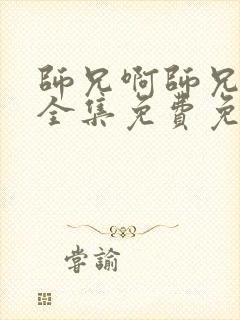 師兄啊師兄
全集免費免
嘗諭